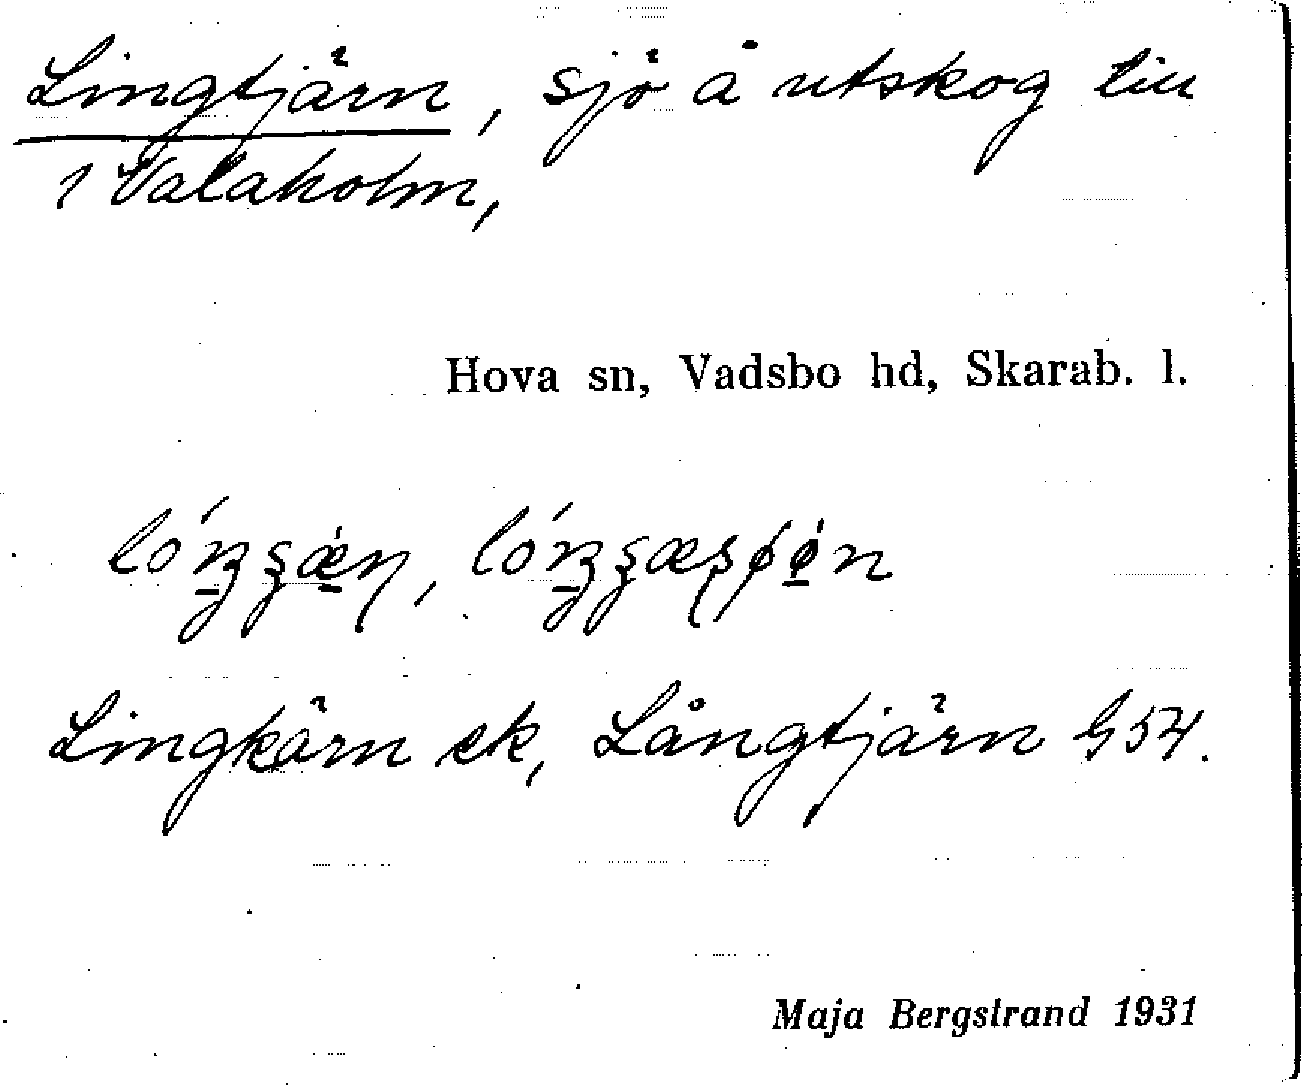 Lingtjärn, sjö å utskog till
1 Valaholm,
Hova sn, Vadsbo hd, Skarab. l.
Lingkärn ek, Långtjärn G54.
Maja Bergstrand 1931